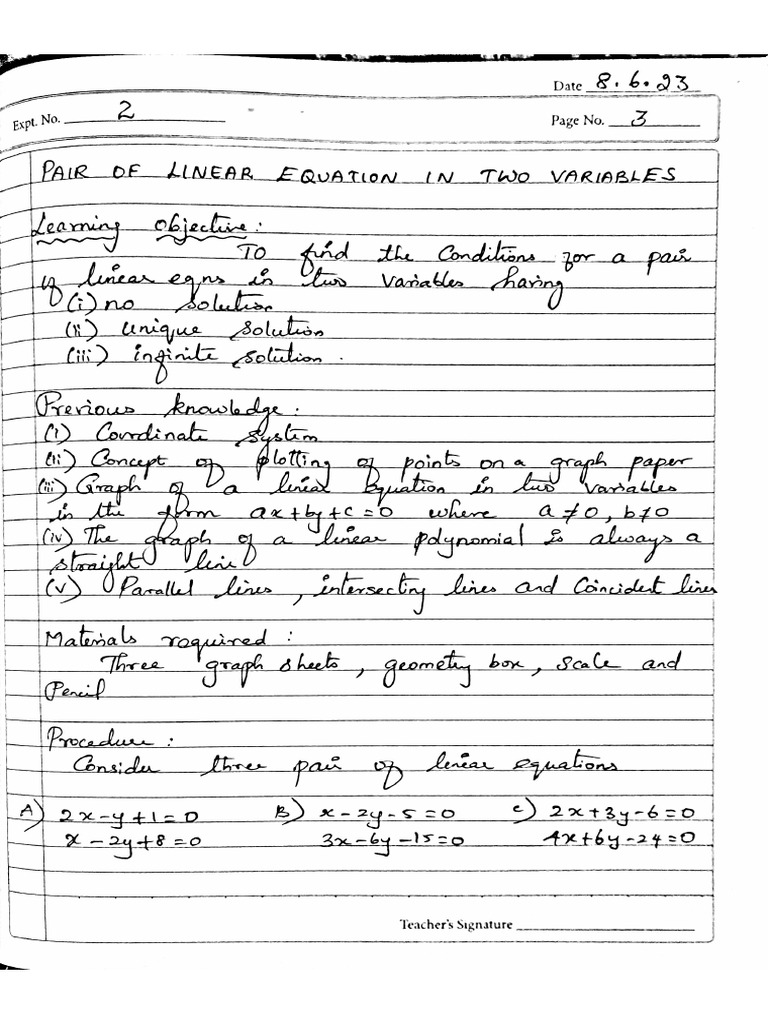 Date 8.6.23
Expt. No. 2
Page No. 3
PAIR OF LINEAR EQUATION IN TWO VARIABLES
Learning objective:
To find the Conditions for a pair
of linear eqns in two variables having
(i) no solution
(ii) unique solution
(iii) infinite solution.
Previous knowledge:
(i) Coordinate system
(ii) Concept of plotting of points on a graph paper
(iii) Graph of a linear Equation in two variables
in the form ax+by+c=0 where a≠0, b≠0
(iv) The graph of a linear polynomial is always a
straight line
(v) Parallel lines, intersecting lines and Coincident lines
Materials required:
Three graph sheets, geometry box, scale and
Pencil
Procedure:
Consider three pair of linear equations
A) 2x-y+1=0 B) x-2y-5=0 C) 2x+3y-6=0
x-2y+8=0 3x-6y-15=0 4x+6y-24=0
Teacher's Signature